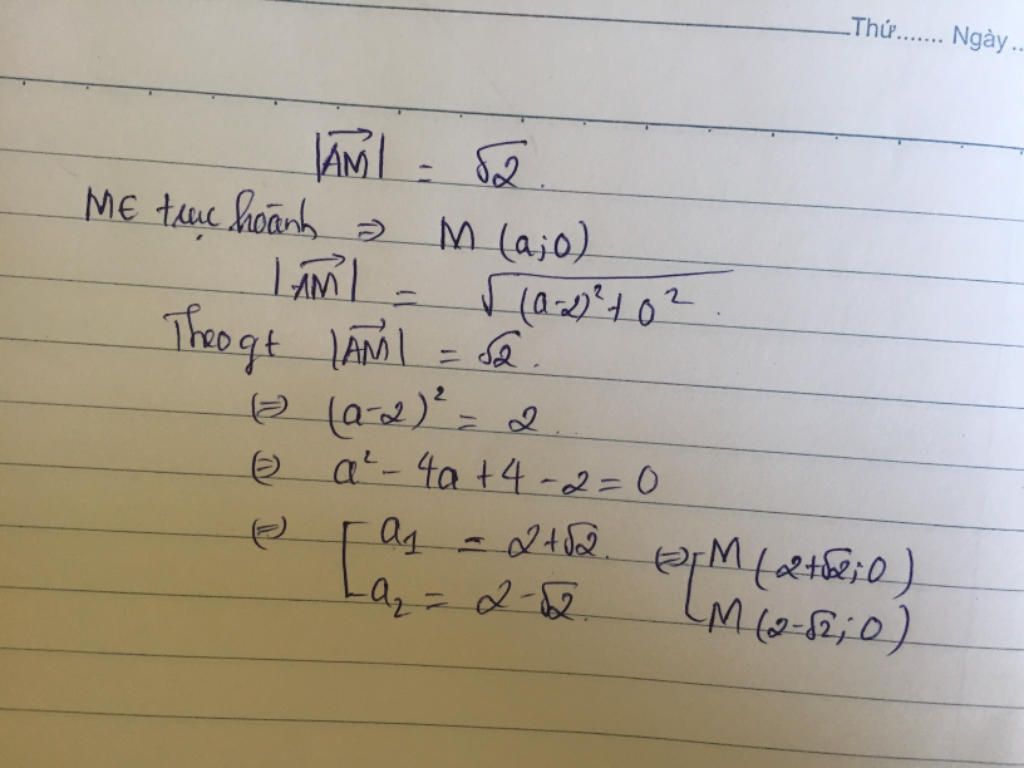 Thứ....... Ngày..
|AM⃗| = √2.
M∈ trục hoành ⇒ M (a;0)
|AM⃗| = √((a-2)²+0²).
Theo gt |AM⃗| = √2.
⇔ (a-2)² = 2
⇔ a² - 4a + 4 - 2 = 0
⇔ [ a₁ = 2+√2. ⇔ [ M (2+√2;0)
a₂ = 2-√2. M (2-√2;0)